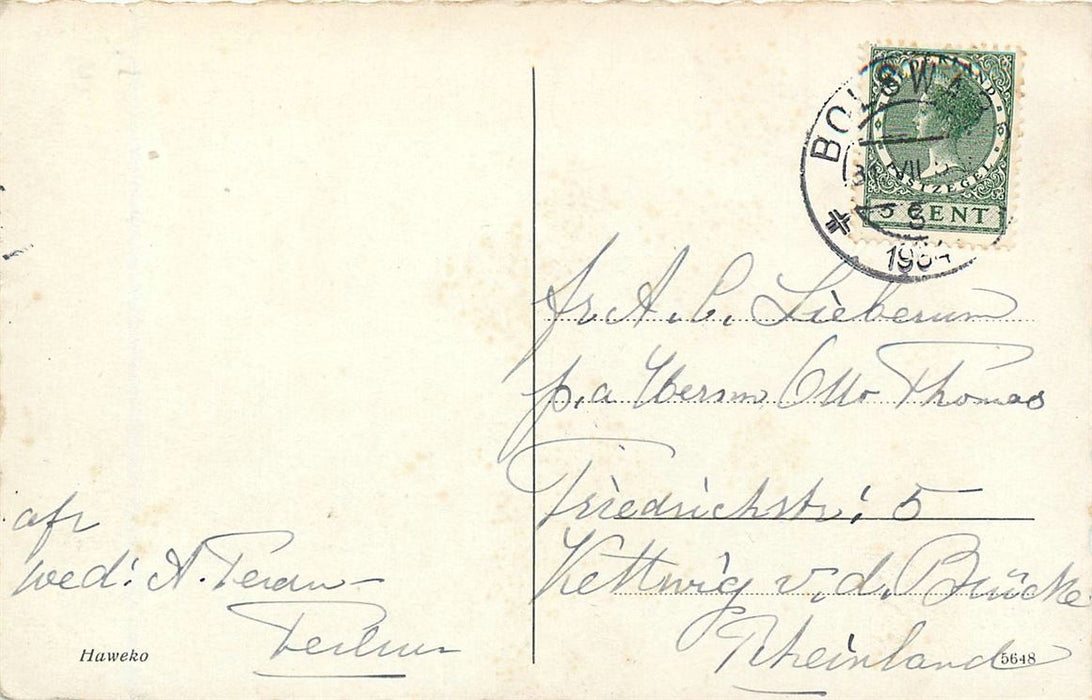 BOLSWA
VII
1934
NEDERLAND
POSTZEGEL
5 CENT
fr. A. C. Lieberum
p.a Herrn Otto Thomas
Friedrichstr: 5
Kettwig v. d. Brücke
Rheinland
afz
wed: A.
Haweko
5648